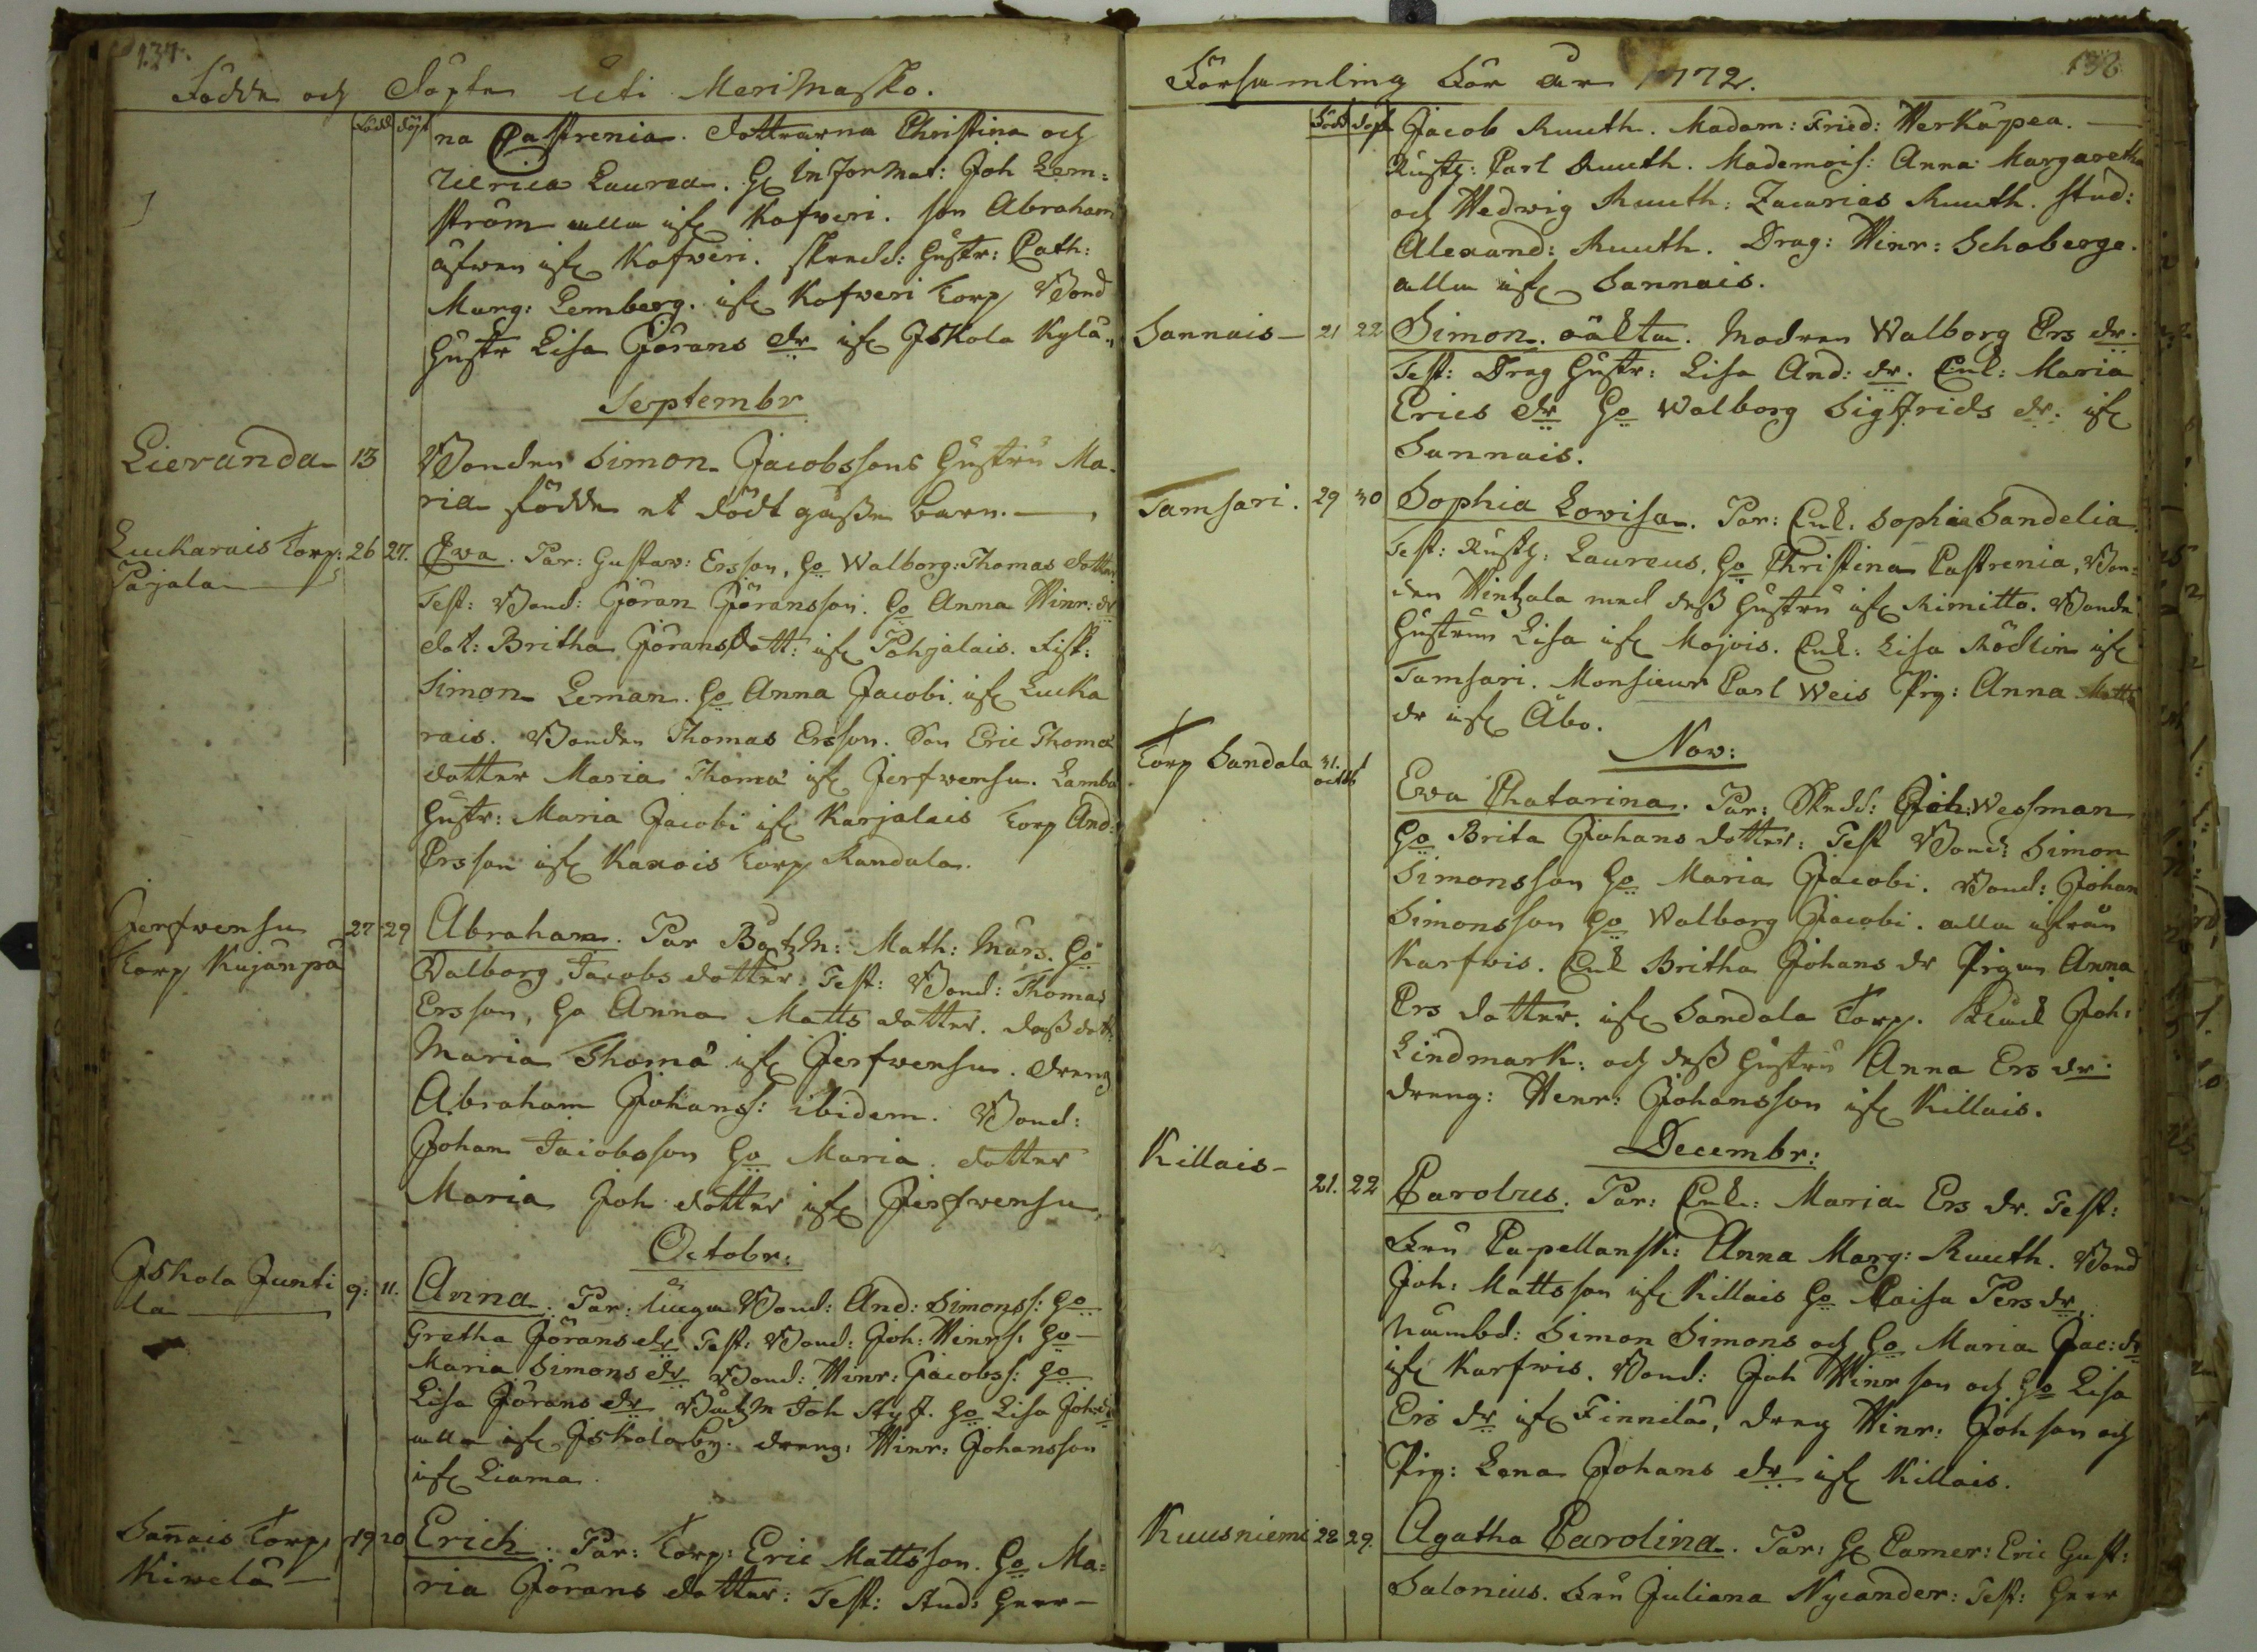 137.
Födde och Döpte uti Merimasko.
Född döpt
na Castrenia. dottrarna Christina och
Ulrica Laurea. H: Informat: Joh Lem-
ström alla ifr: Kofweri. son Abraham
äfwen ifr: Kofweri. skredd: hustr: Cath:
Marg: Lemberg. ifr: Kofweri torp Bond
hustr Lisa Görans dr ifr: Iskola Kylä.
Septembr
Lieranda 13 Bonden Simon Jacobssons hustru Ma-
ria födde et dödt gåsse barn.
Luckarais torp: 26 27. Ewa. Par: Gustav: Ersson, Ho Walborg Thomas dotter
Parjala
Test: Bond: Göran Göransson. Ho Anna Hinr: dr
dot: Britha Görans dott: ifr: Pohjalais. Fisk:
Simon Leman. Ho Anna Jacobi. ifr: Lucka
rais. Bonden Thomas Ersson. Son Eric Thomæ
dotter Maria Thomæ ifr: Jerfwensu. Lamba
hustr: Maria Jacobi ifr: Karjalais torp And:
Ersson ifr: Kaxois torp Randala.
Jerfwensu 27 29 Abraham. Par Båtzm: Math: Murs. Ho
torp Kujanpä
Walborg Jacobs dotter: Test: Bond: Thomas
Ersson, Ho Anna Matts dotter. dess dott:
Maria Thomæ ifr: Jerfwensu. dreng
Abraham Johanss: ibidem. Bond:
Johan Jacobsson Ho Maria. dotter
Maria Joh dotter ifr: Jerfwensu.
Octobr:
Iskola Junti 9: 11. Anna. Par: unga Bond: And: Simonss: Ho
la
Gretha Görans dr Test: Bond: Joh: Hinrs: Ho
Maria Simons dr Bond: Hinr: Jacobss: Ho
Lisa Görans dr Båtzm Joh Styf. Ho Lisa Joh: dr
alla ifr: Iskolaby. dreng: Hinr: Johansson
ifr: Liama.
Sannais torp 19 20 Erich. Par: torp: Eric Mattsson. Ho Ma-
Kiwelä
ria Görans dotter: Test: Stud: Herr
138
Församling För år 1772.
Född döpt Jacob Ruuth. Madam: Fried: Herkäpea.
Rustg: Carl Ruuth. Mademois: Anna Margaretha
och Hedwig Ruuth: Zacarias Ruuth. stud:
Alexand: Ruuth. Drag: Hinr: Schoberge.
alla ifr: Sannais.
Sannais 21 22 Simon. oäkta. Modren Walborg Ers dr.
Test: Drag hustr: Lisa And: dr. Enk: Maria
Erics dr Ho Walborg Sigfrids dr. ifr:
Sannais.
Tamsari. 29 30 Sophia Lovisa. Par: Enk: Sophia Sandelia.
Test: Rustg: Laureus, Ho Christina Castrenia, Bon-
den Hintzala med dess hustru ifr: Rimitto. Bonde
hustrun Lisa ifr: Mojois. Enk: Lisa Rödlin ifr:
Tamsari. Monsieur Carl Weis Pig: Anna Matts
dr ifr: Åbo.
Nov:
Torp Sandala 31. octob 1 Ewa Chatarina. Par: Skredd: Joh: Wessman
Ho Brita Johans dotter: Test Bond: Simon
Simonsson Ho Maria Jacobi. Bond: Johan
Simonsson Ho Walborg Jacobi. alla ifrån
Karfwis. Enk Britha Johans dr Pigan Anna
Ers dotter. ifr: Sandala torp. Joh:
Lindmark: och dess hustru Anna Ers dr.
dreng: Henr: Johansson ifr: Killais.
Decembr:
Killais 21. 22 Carolus. Par: Enk: Maria Ers dr. Test:
Fru Capellansk: Anna Marg: Ruuth. Bond
Joh: Mattsson ifr: Killais Ho Caisa Pers dr.
Nämbd: Simon Simons och Ho Maria Jac: dr
ifr: Karfwis. Bond: Joh Hinrson och Ho Lisa
Ers dr ifr: Finnilä, dreng Hinr: Johson och
Pig: Lena Johans dr ifr: Killais.
Kuusniemi 28 29. Agatha Carolina. Par: H: Camer: Eric Gust:
Salonius. Fru Juliana Nycander: Test: Herr